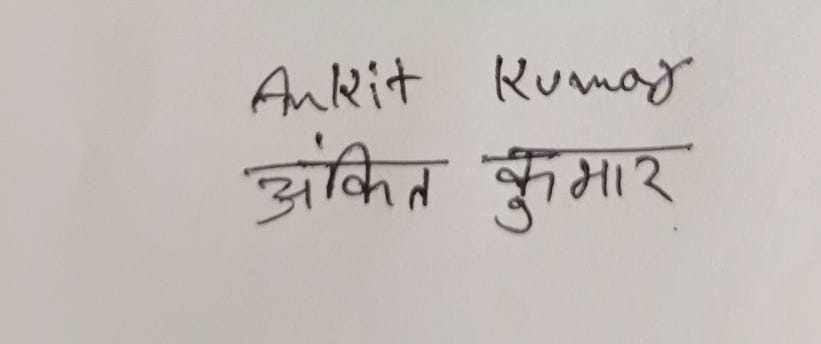 Ankit Kumar
अंकित कुमार